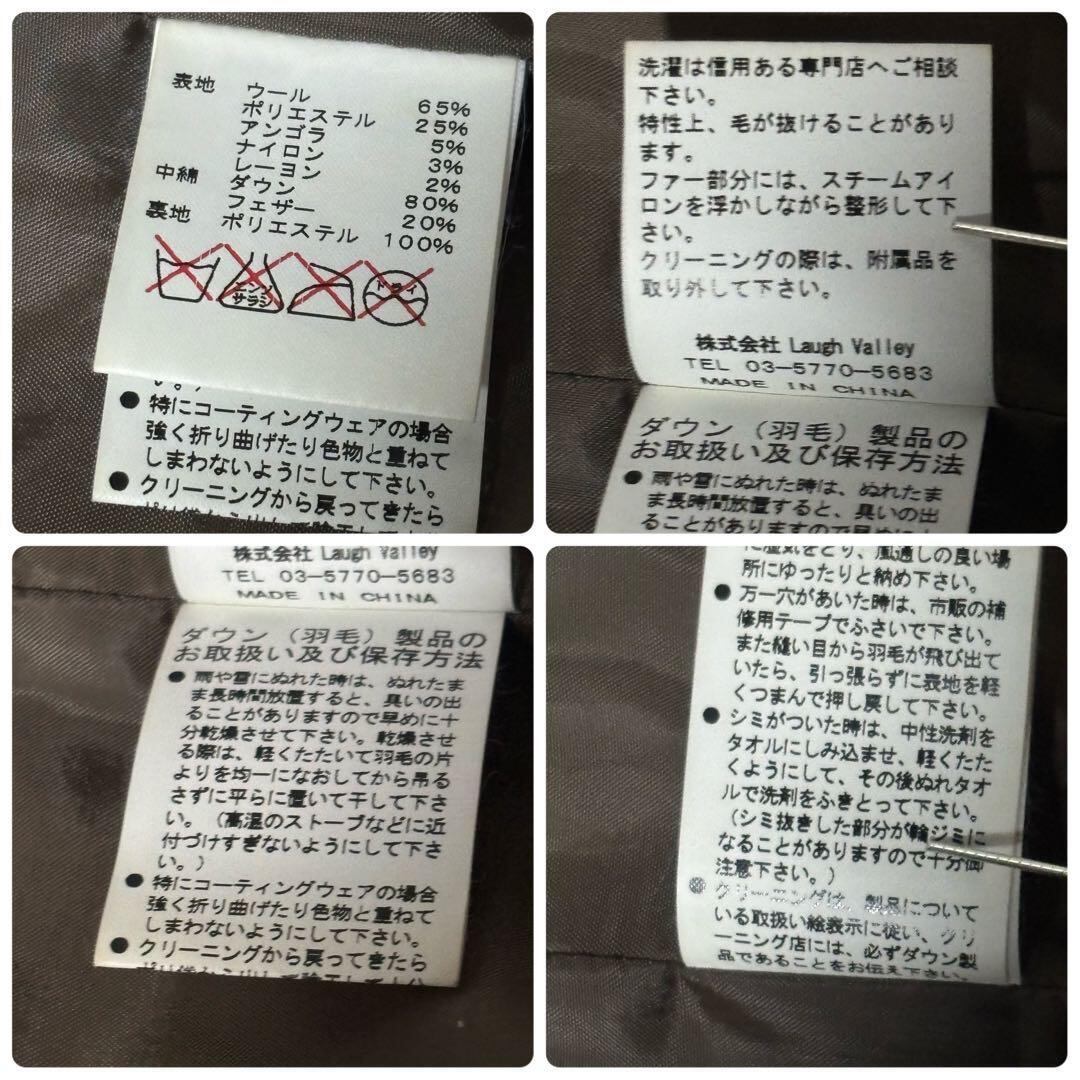 表地 ウール 65%
ポリエステル 25%
アンゴラ 5%
ナイロン 3%
レーヨン 2%
中綿 ダウン 80%
フェザー 20%
裏地 ポリエステル 100%
エンソ
サラシ
ドライ
い。)
●特にコーティングウェアの場合
強く折り曲げたり色物と重ねて
しまわないようにして下さい。
●クリーニングから戻ってきたら
洗濯は信用ある専門店へご相談
下さい。
特性上、毛が抜けることがあり
ます。
ファー部分には、スチームアイ
ロンを浮かしながら整形して下
さい。
クリーニングの際は、附属品を
取り外して下さい。
株式会社 Laugh Valley
TEL 03-5770-5683
MADE IN CHINA
ダウン(羽毛)製品の
お取扱い及び保存方法
●雨や雪にぬれた時は、ぬれたま
ま長時間放置すると、臭いの出
ることがありますので早めに十
株式会社 Laugh Valley
TEL 03-5770-5683
MADE IN CHINA
ダウン(羽毛)製品の
お取扱い及び保存方法
●雨や雪にぬれた時は、ぬれたま
ま長時間放置すると、臭いの出
ることがありますので早めに十
分乾燥させて下さい。乾燥させ
る際は、軽くたたいて羽毛の片
よりを均一になおしてから吊る
さずに平らに置いて干して下さ
い。(高温のストーブなどに近
付づけすぎないようにして下さ
い。)
●特にコーティングウェアの場合
強く折り曲げたり色物と重ねて
しまわないようにして下さい。
●クリーニングから戻ってきたら
に湿気をとり、風通しの良い場
所にゆったりと納め下さい。
●万一穴があいた時は、市販の補
修用テープでふさいで下さい。
また縫い目から羽毛が飛び出て
いたら、引っ張らずに表地を軽
くつまんで押し戻して下さい。
●シミがついた時は、中性洗剤を
タオルにしみ込ませ、軽くたた
くようにして、その後ぬれタオ
ルで洗剤をふきとって下さい。
(シミ抜きした部分が輪ジミに
なることがありますので十分御
注意下さい。)
●クリーニングは、製品について
いる取扱い絵表示に従い、クリ
ーニング店には、必ずダウン製
品であることをお伝え下さい。